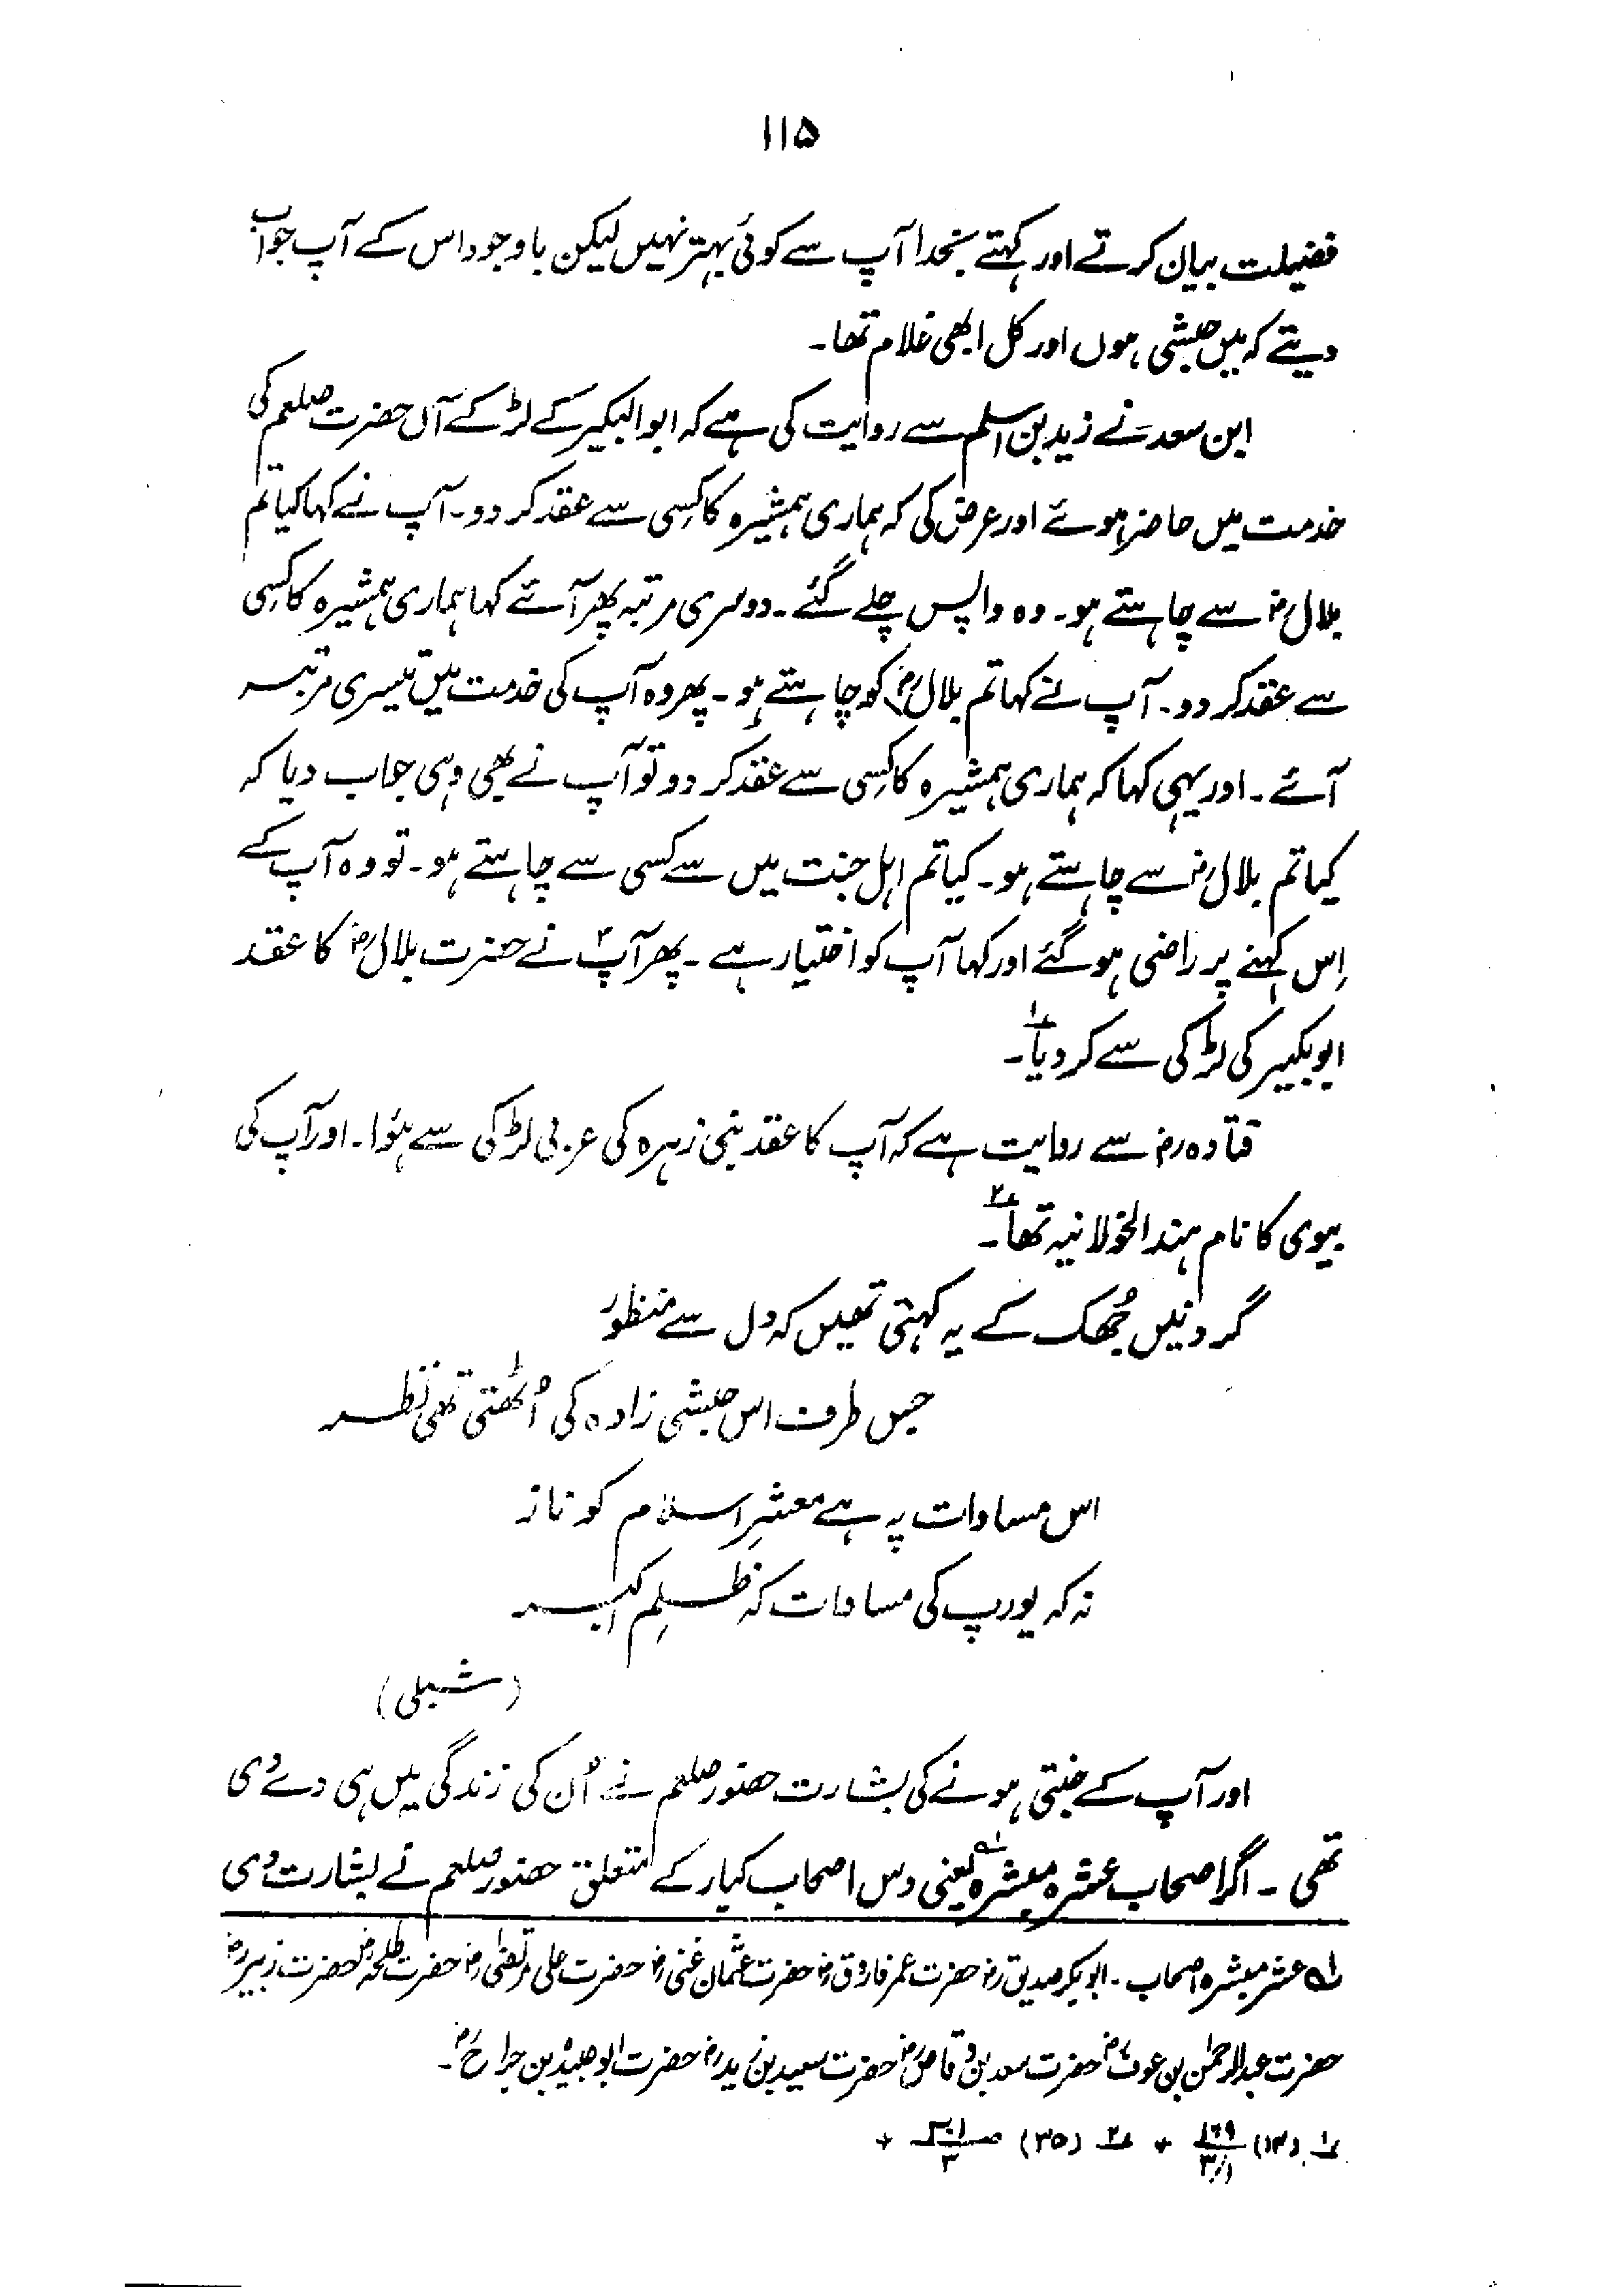 ۱۱۵
فضیلت بیان کرتے اور کہتے بخدا آپ سے کوئی بہتر نہیں لیکن باوجود اس کے آپ جواب
دیتے کہ میں حبشی ہوں اور کل ابھی غلام تھا۔
ابن سعد نے زید بن اسلم سے روایت کی ہے کہ ابوالبکیر کے لڑکے آں حضرت صلعم کی
خدمت میں حاضر ہوئے اور عرض کی کہ ہماری ہمشیرہ کا کسی سے عقد کر دو۔ آپ نے کہا کیا تم
بلالؓ سے چاہتے ہو۔ وہ واپس چلے گئے۔ دوسری مرتبہ پھر آئے کہا ہماری ہمشیرہ کا کسی
سے عقد کر دو۔ آپ نے کہا تم بلالؓ کو چاہتے ہو۔ پھر وہ آپ کی خدمت میں تیسری مرتبہ
آئے۔ اور یہی کہا کہ ہماری ہمشیرہ کا کسی سے عقد کر دو تو آپ نے بھی وہی جواب دیا کہ
کیا تم بلالؓ سے چاہتے ہو۔ کیا تم اہل جنت میں سے کسی سے چاہتے ہو۔ تو وہ آپ کے
اِس کہنے پر راضی ہو گئے اور کہا آپ کو اختیار ہے۔ پھر آپؐ نے حضرت بلالؓ کا عقد
ابوبکیر کی لڑکی سے کر دیا۱؎۔
قتادہؓ سے روایت ہے کہ آپ کا عقد بنی زہرہ کی عربی لڑکی سے ہئوا۔ اور آپ کی
بیوی کا نام ہند الخولانیہ تھا۲؎۔
گردنیں جُھک کے یہ کہتی تھیں کہ دل سے منظور
جس طرف اس حبشی زادہ کی اُٹھتی تھی نظر
اس مساوات پہ ہے معشرِ اسلام کو ناز
نہ کہ یورپ کی مساوات کہ ظلمِ اکبر
(شبلی)
اور آپ کے جنتی ہونے کی بشارت حضور صلعم نے اُن کی زندگی میں ہی دے دی
تھی۔ اگر اصحاب عشرہ مبشرہ۱؎ یعنی دس اصحاب کبار کے متعلق حضور صلعم نے بشارت دی
۱؎ عشر مبشرہ اصحاب۔ ابوبکر صدیقؓ حضرت عمر فاروقؓ حضرت عثمان غنیؓ حضرت علی مرتضیٰؓ حضرت طلحہؓ حضرت زبیرؓ
حضرت عبدالرحمٰن بن عوفؓ حضرت سعد بن وقاصؓ حضرت سعید بن زیدؓ حضرت ابوعبیدہ بن جراحؓ۔
۱؎ (۱۴) ۱۶۹ ۳/۱ + ۲؎ (۳۵)